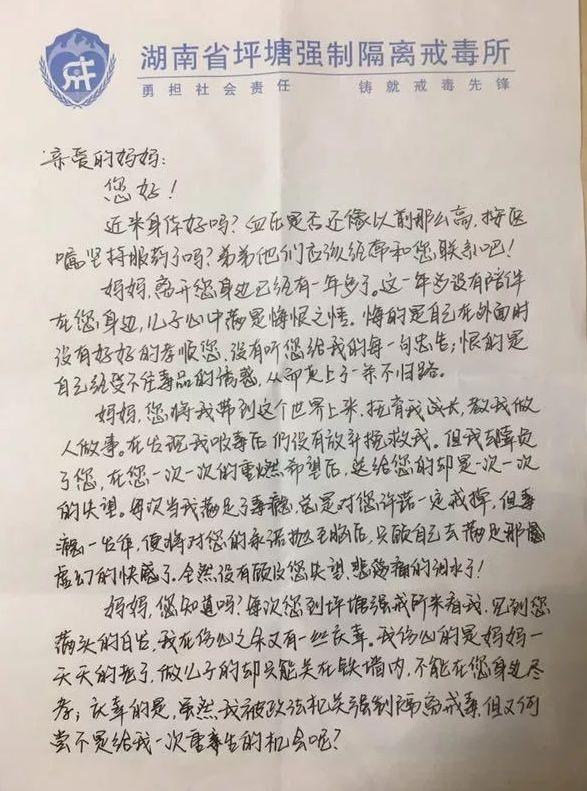 湖南省坪塘强制隔离戒毒所
勇担社会责任 铸就戒毒先锋
亲爱的妈妈:
您好!
近来身体好吗?血压是否还像以前那么高,按医
嘱坚持服药了吗?弟弟他们应该经常和您联系吧!
妈妈,离开您身边已经有一年多了。这一年多没有陪伴
在您身边,儿子心中满是悔恨之情。悔的是自己在外面时
没有好好的孝顺您,没有听您给我的每一句忠告;恨的是
自己经受不住毒品的诱惑,从而走上了一条不归路。
妈妈,您将我带到这个世界上来,抚育我成长,教我做
人做事。在发现我吸毒后仍没有放弃挽救我。但我却辜负
了您,在您一次一次的重燃希望后,送给您的却是一次一次
的失望。每次当我满足了毒瘾,总是对您许诺一定戒掉,但毒
瘾一发作,便将对您的承诺抛至脑后,只顾自己去满足那
虚幻的快感了。全然没有顾及您失望、悲痛的泪水了!
妈妈,您知道吗?每次您到坪塘强戒所来看我,见到您
满头的白发,我在伤心之余又有一丝庆幸。我伤心的是妈妈一
天天的老了,做儿子的却只能关在铁墙内,不能在您身边尽
孝;庆幸的是,虽然我被政法机关强制隔离戒毒,但又何
尝不是给我一次重生的机会呢?